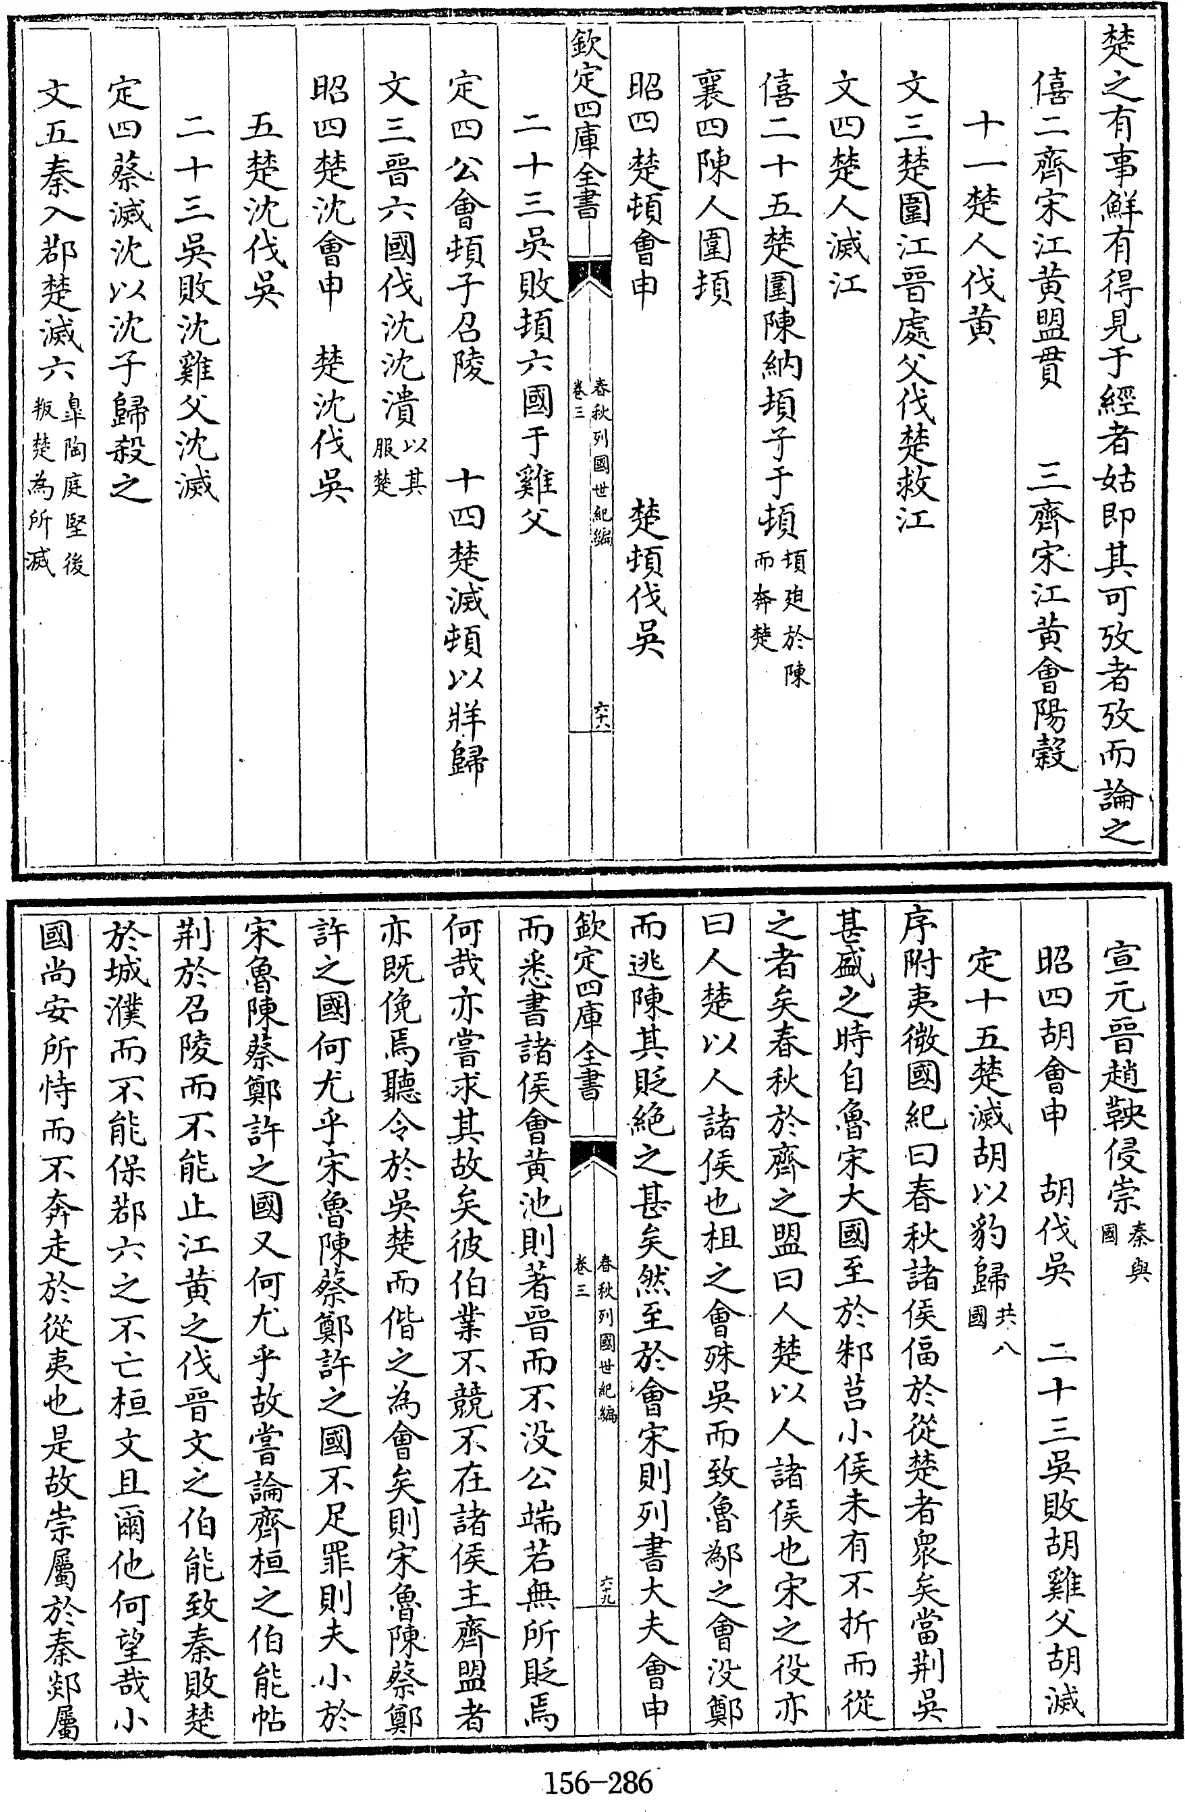 楚之有事鮮有得見于經者姑即其可攷者攷而論之
僖二齊宋江黄盟貫　三齊宋江黄會陽穀
十一楚人伐黄
文三楚圍江晉處父伐楚救江
文四楚人滅江
僖二十五楚圍陳納頓子于頓頓廹於陳而奔楚
襄四陳人圍頓
昭四楚頓會申　楚頓伐吳
欽定四庫全書　春秋列國世紀編卷三　六十八
二十三吳敗頓六國于雞父
定四公會頓子召陵　十四楚滅頓以牂歸
文三晉六國伐沈沈潰以其服楚
昭四楚沈會申　楚沈伐吳
五楚沈伐吳
二十三吳敗沈雞父沈滅
定四蔡滅沈以沈子歸殺之
文五秦入鄀楚滅六臯陶庭堅後叛楚為所滅
宣元晉趙鞅侵崇秦與國
昭四胡會申　胡伐吳　二十三吳敗胡雞父胡滅
定十五楚滅胡以豹歸共八國
序附夷微國紀曰春秋諸侯偪於從楚者衆矣當荆吳
甚盛之時自魯宋大國至於邾莒小侯未有不折而從
之者矣春秋於齊之盟曰人楚以人諸侯也宋之役亦
曰人楚以人諸侯也柤之會殊吳而致魯鄬之會没鄭
而逃陳其貶絶之甚矣然至於會宋則列書大夫會申
欽定四庫全書　春秋列國世紀編卷三　六十九
而悉書諸侯會黄池則著晉而不没公端若無所貶焉
何哉亦嘗求其故矣彼伯業不競不在諸侯主齊盟者
亦既俛焉聽令於吳楚而偕之為會矣則宋魯陳蔡鄭
許之國何尤乎宋魯陳蔡鄭許之國不足罪則夫小於
宋魯陳蔡鄭許之國又何尤乎故嘗論齊桓之伯能帖
荆於召陵而不能止江黄之伐晉文之伯能致秦敗楚
於城濮而不能保鄀六之不亡桓文且爾他何望哉小
國尚安所恃而不奔走於從夷也是故崇屬於秦郯屬
156-286